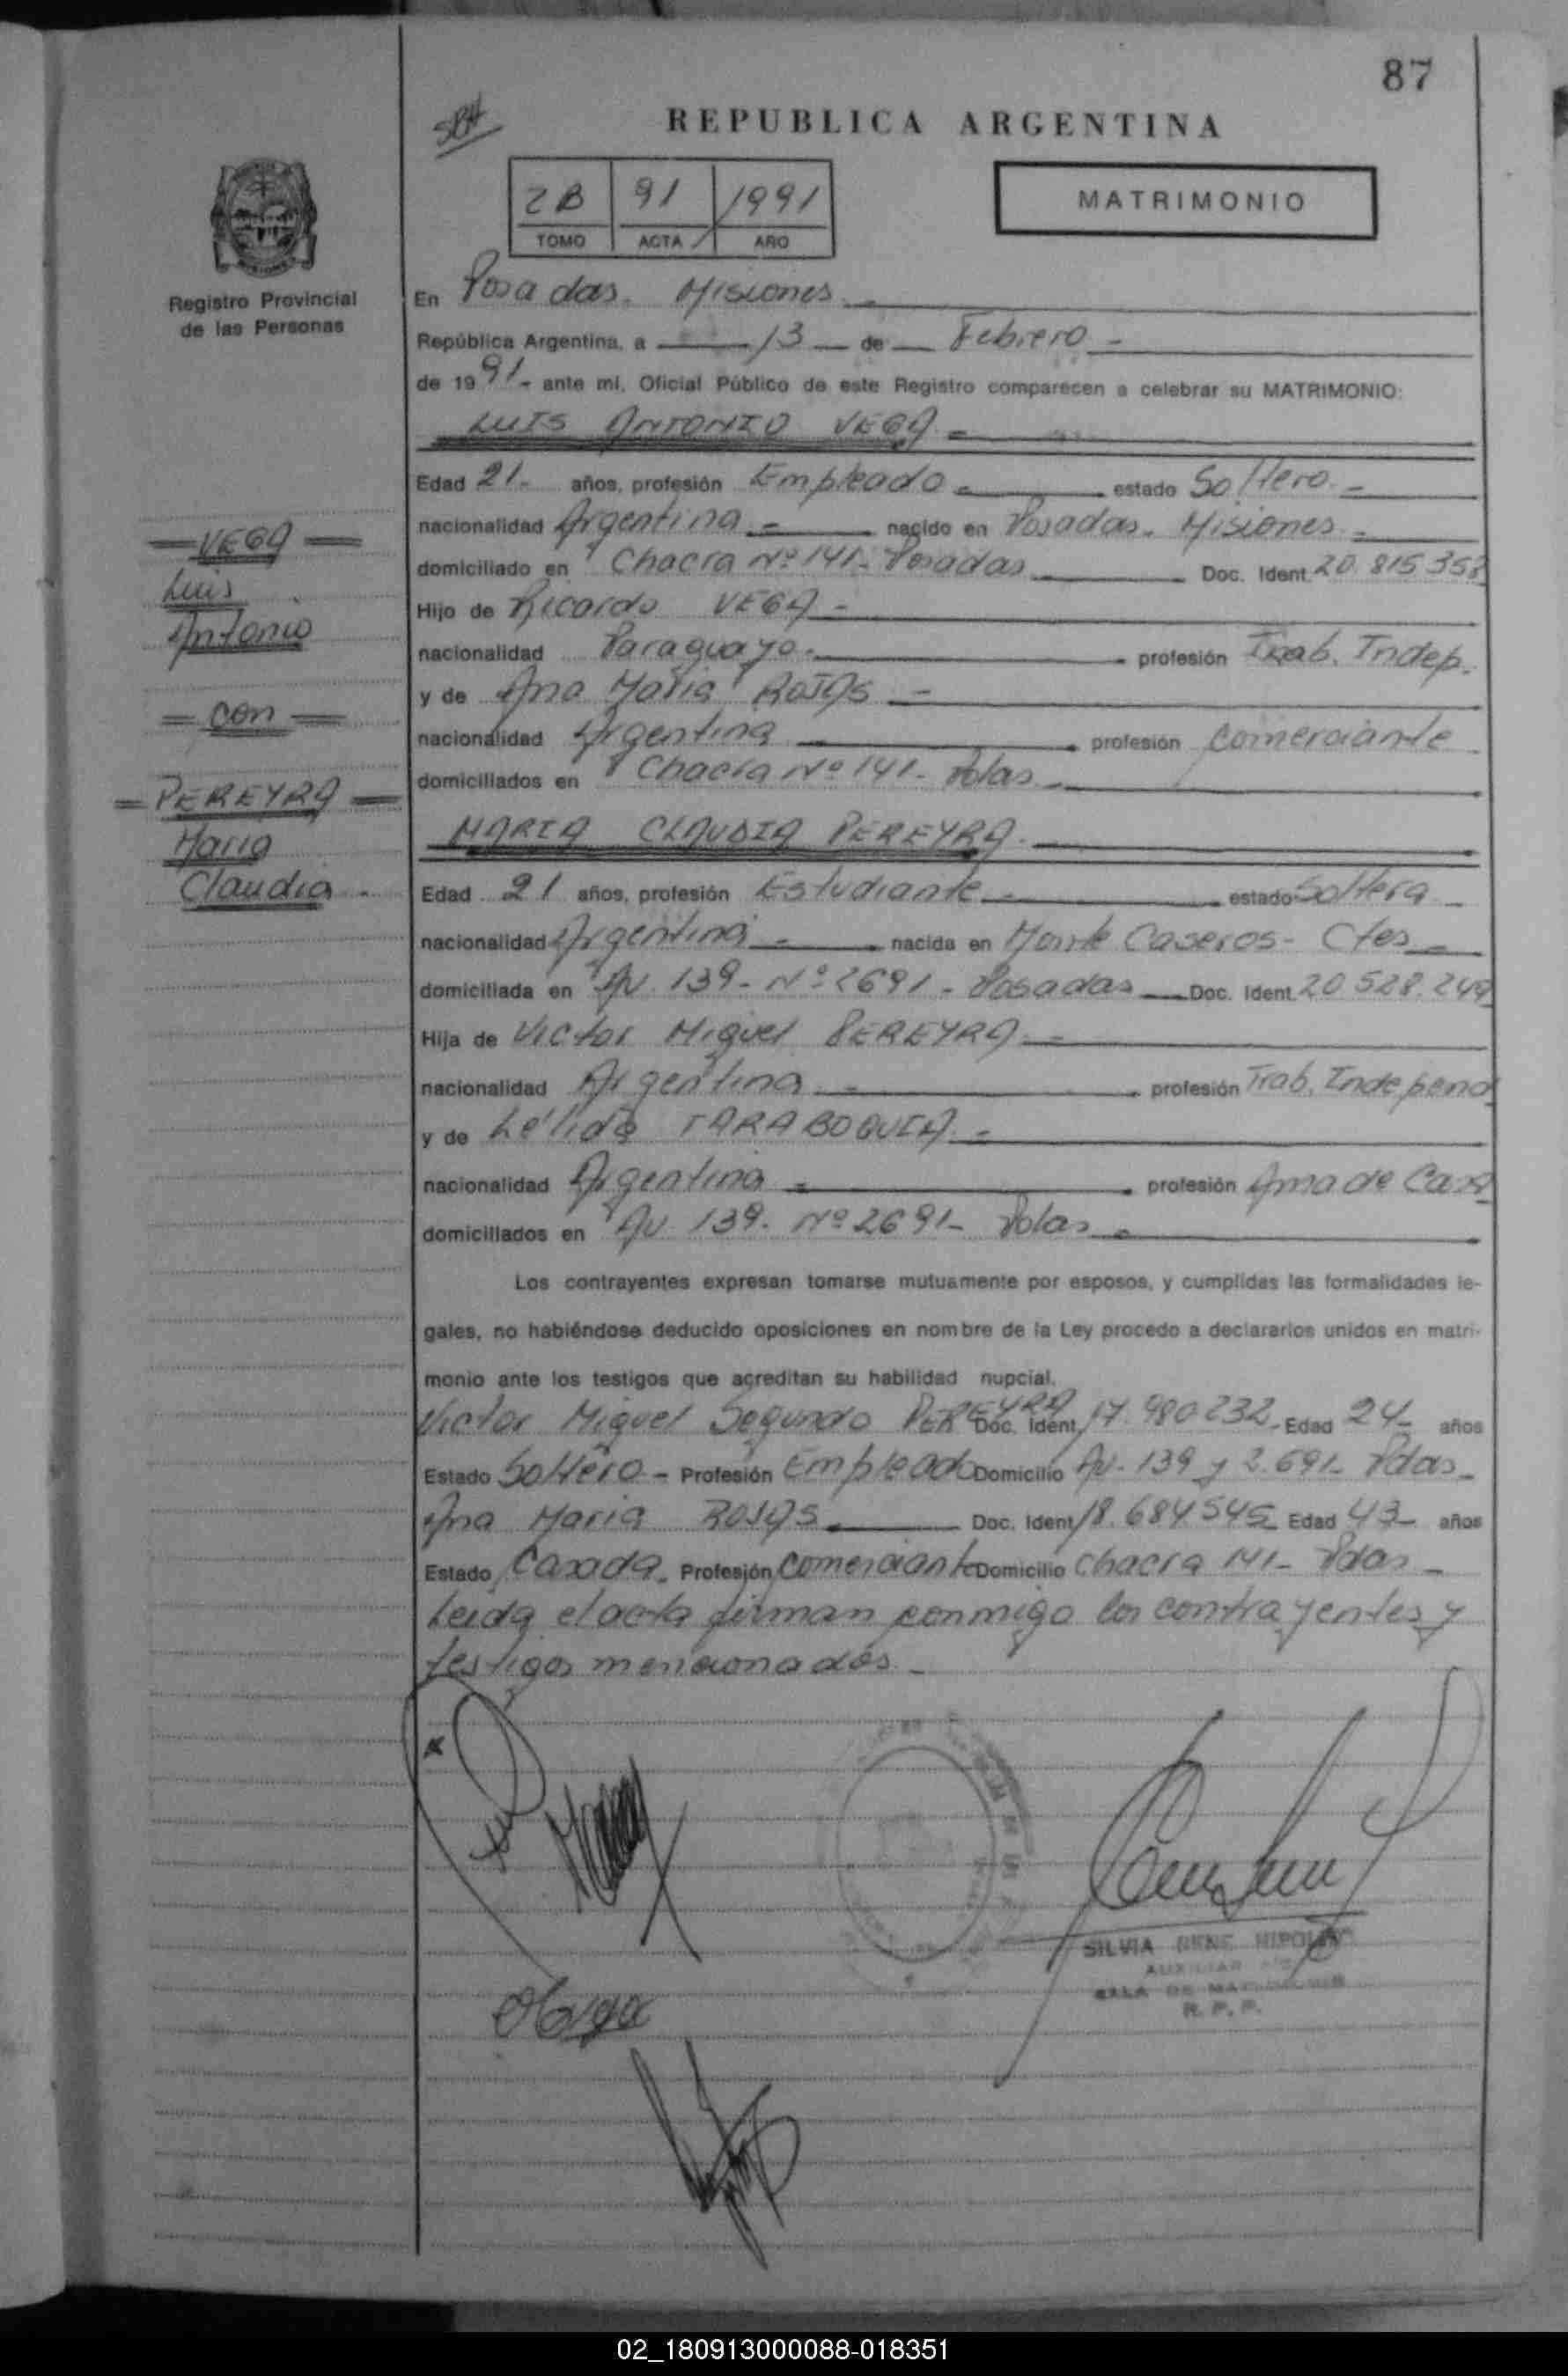 87
REPUBLICA ARGENTINA
2B 91 1991
TOMO ACTA AÑO
MATRIMONIO
Registro Provincial
de las Personas
En Posadas. Misiones
República Argentina, a 13 de Febrero
de 1991 - ante mí, Oficial Público de este Registro comparecen a celebrar su MATRIMONIO:
LUIS ANTONIO VEGA
Edad 21 años, profesión Empleado estado Soltero
nacionalidad Argentina nacido en Posadas. Misiones
domiciliado en Chacra Nº 141 - Posadas Doc. Ident. 20.815.358
Hijo de Ricardo VEGA
nacionalidad Paraguayo profesión Trab. Indep.
y de Ana Maria ROJAS
nacionalidad Argentina profesión Comerciante
domiciliados en Chacra Nº 141 - Pdas
MARIA CLAUDIA PEREYRA
Edad 21 años, profesión Estudiante estado Soltera
nacionalidad Argentina nacida en Monte Caseros - Ctes
domiciliada en Av. 139 - Nº 2691 - Posadas Doc. Ident. 20.528.249
Hija de Victor Miguel PEREYRA
nacionalidad Argentina profesión Trab. Independ
y de Lélida TARABOQUIA
nacionalidad Argentina profesión Ama de Casa
domiciliados en Av. 139. Nº 2691 - Pdas
Los contrayentes expresan tomarse mutuamente por esposos, y cumplidas las formalidades le-
gales, no habiéndose deducido oposiciones en nombre de la Ley procedo a declararlos unidos en matri-
monio ante los testigos que acreditan su habilidad nupcial.
Victor Miguel Segundo PEREYRA Doc. Ident. 17.980.232 - Edad 24 años
Estado Soltero - Profesión Empleado Domicilio Av. 139 y 2.691 - Pdas
Ana Maria ROJAS Doc. Ident. 18.684.545 Edad 43 años
Estado Casada - Profesión Comerciante Domicilio Chacra 141 - Pdas
Leida el acta firman conmigo los contrayentes y
testigos mencionados
VEGA
Luis
Antonio
= con =
= PEREYRA =
Maria
Claudia
SILVIA RENE HIPOLITO
AUXILIAR
SALA DE MATRIMONIOS
R. P. P.
02_180913000088-018351